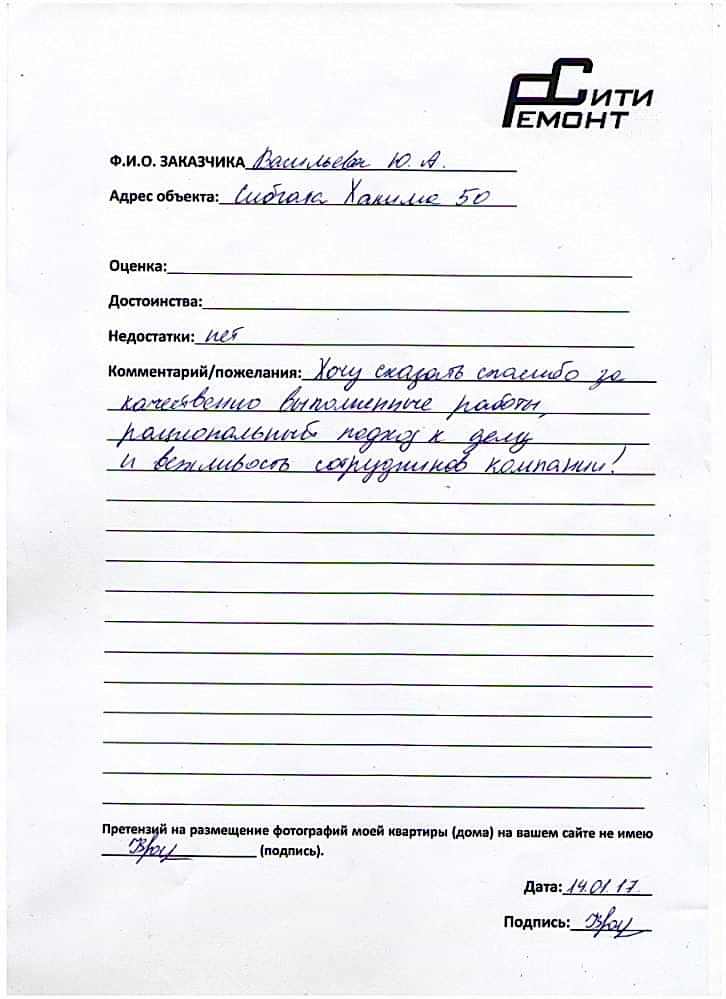 СИТИ
РЕМОНТ
Ф.И.О. ЗАКАЗЧИКА Васильева Ю. А.
Адрес объекта: Сибгата Хакима 50
Оценка:
Достоинства:
Недостатки: нет
Комментарий/пожелания: Хочу сказать спасибо за
качественно выполненные работы,
рациональный подход к делу
и вежливость сотрудников компании!
Претензий на размещение фотографий моей квартиры (дома) на вашем сайте не имею
(подпись).
Дата: 14.01.17.
Подпись: